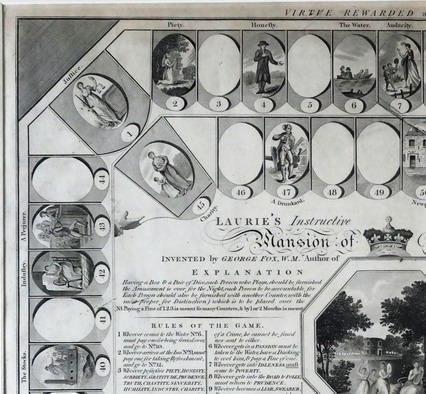 VIRTUE REWARDED
Piety.
Honesty.
The Water.
Audacity.
Justice.
1
2
3
4
5
6
7
44
A Perjurer.
43
Industry.
42
41
The Stocks.
45
Charity
46
47
A Drunkard.
48
49
50
LAURIE'S Instructive
Mansion of
INVENTED by GEORGE FOX, W.M. Author of
EXPLANATION
Having a Box & a Pair of Dice, each Person who Plays, should be furnished
the Amusement is over, for the Night, each Person to be accountable, for
Each Person should also be furnished with another Counter, with the
Proper, for Distinction) which is to be placed over the
NB. Paying a Fine of 1.2.3. is meant so many Counters, & by 1 or 2 Months is meant
RULES OF THE GAME.
1 Whoever comes to the Water No. 6.
and go to No. 10.
2 Whoever arrives at the Inn
and go to No.
3 Whoever possesses PIETY, HONESTY,
SOBRIETY, GRATITUDE, PRUDENCE,
TRUTH, CHASTITY, SINCERITY,
HUMILITY, INDUSTRY, CHARITY,
of a Crime, he cannot be fined
nor sent to either
6 Whoever gets in a PASSION must be
taken to the Water, have a Ducking
to cool him, & pay a Fine of
7 Whoever gets into IDLENESS must
come to POVERTY.
8 Whoever gets into the Road to FOLLY
must return to PRUDENCE.
9 Whoever becomes a LIAR, SWEARER,